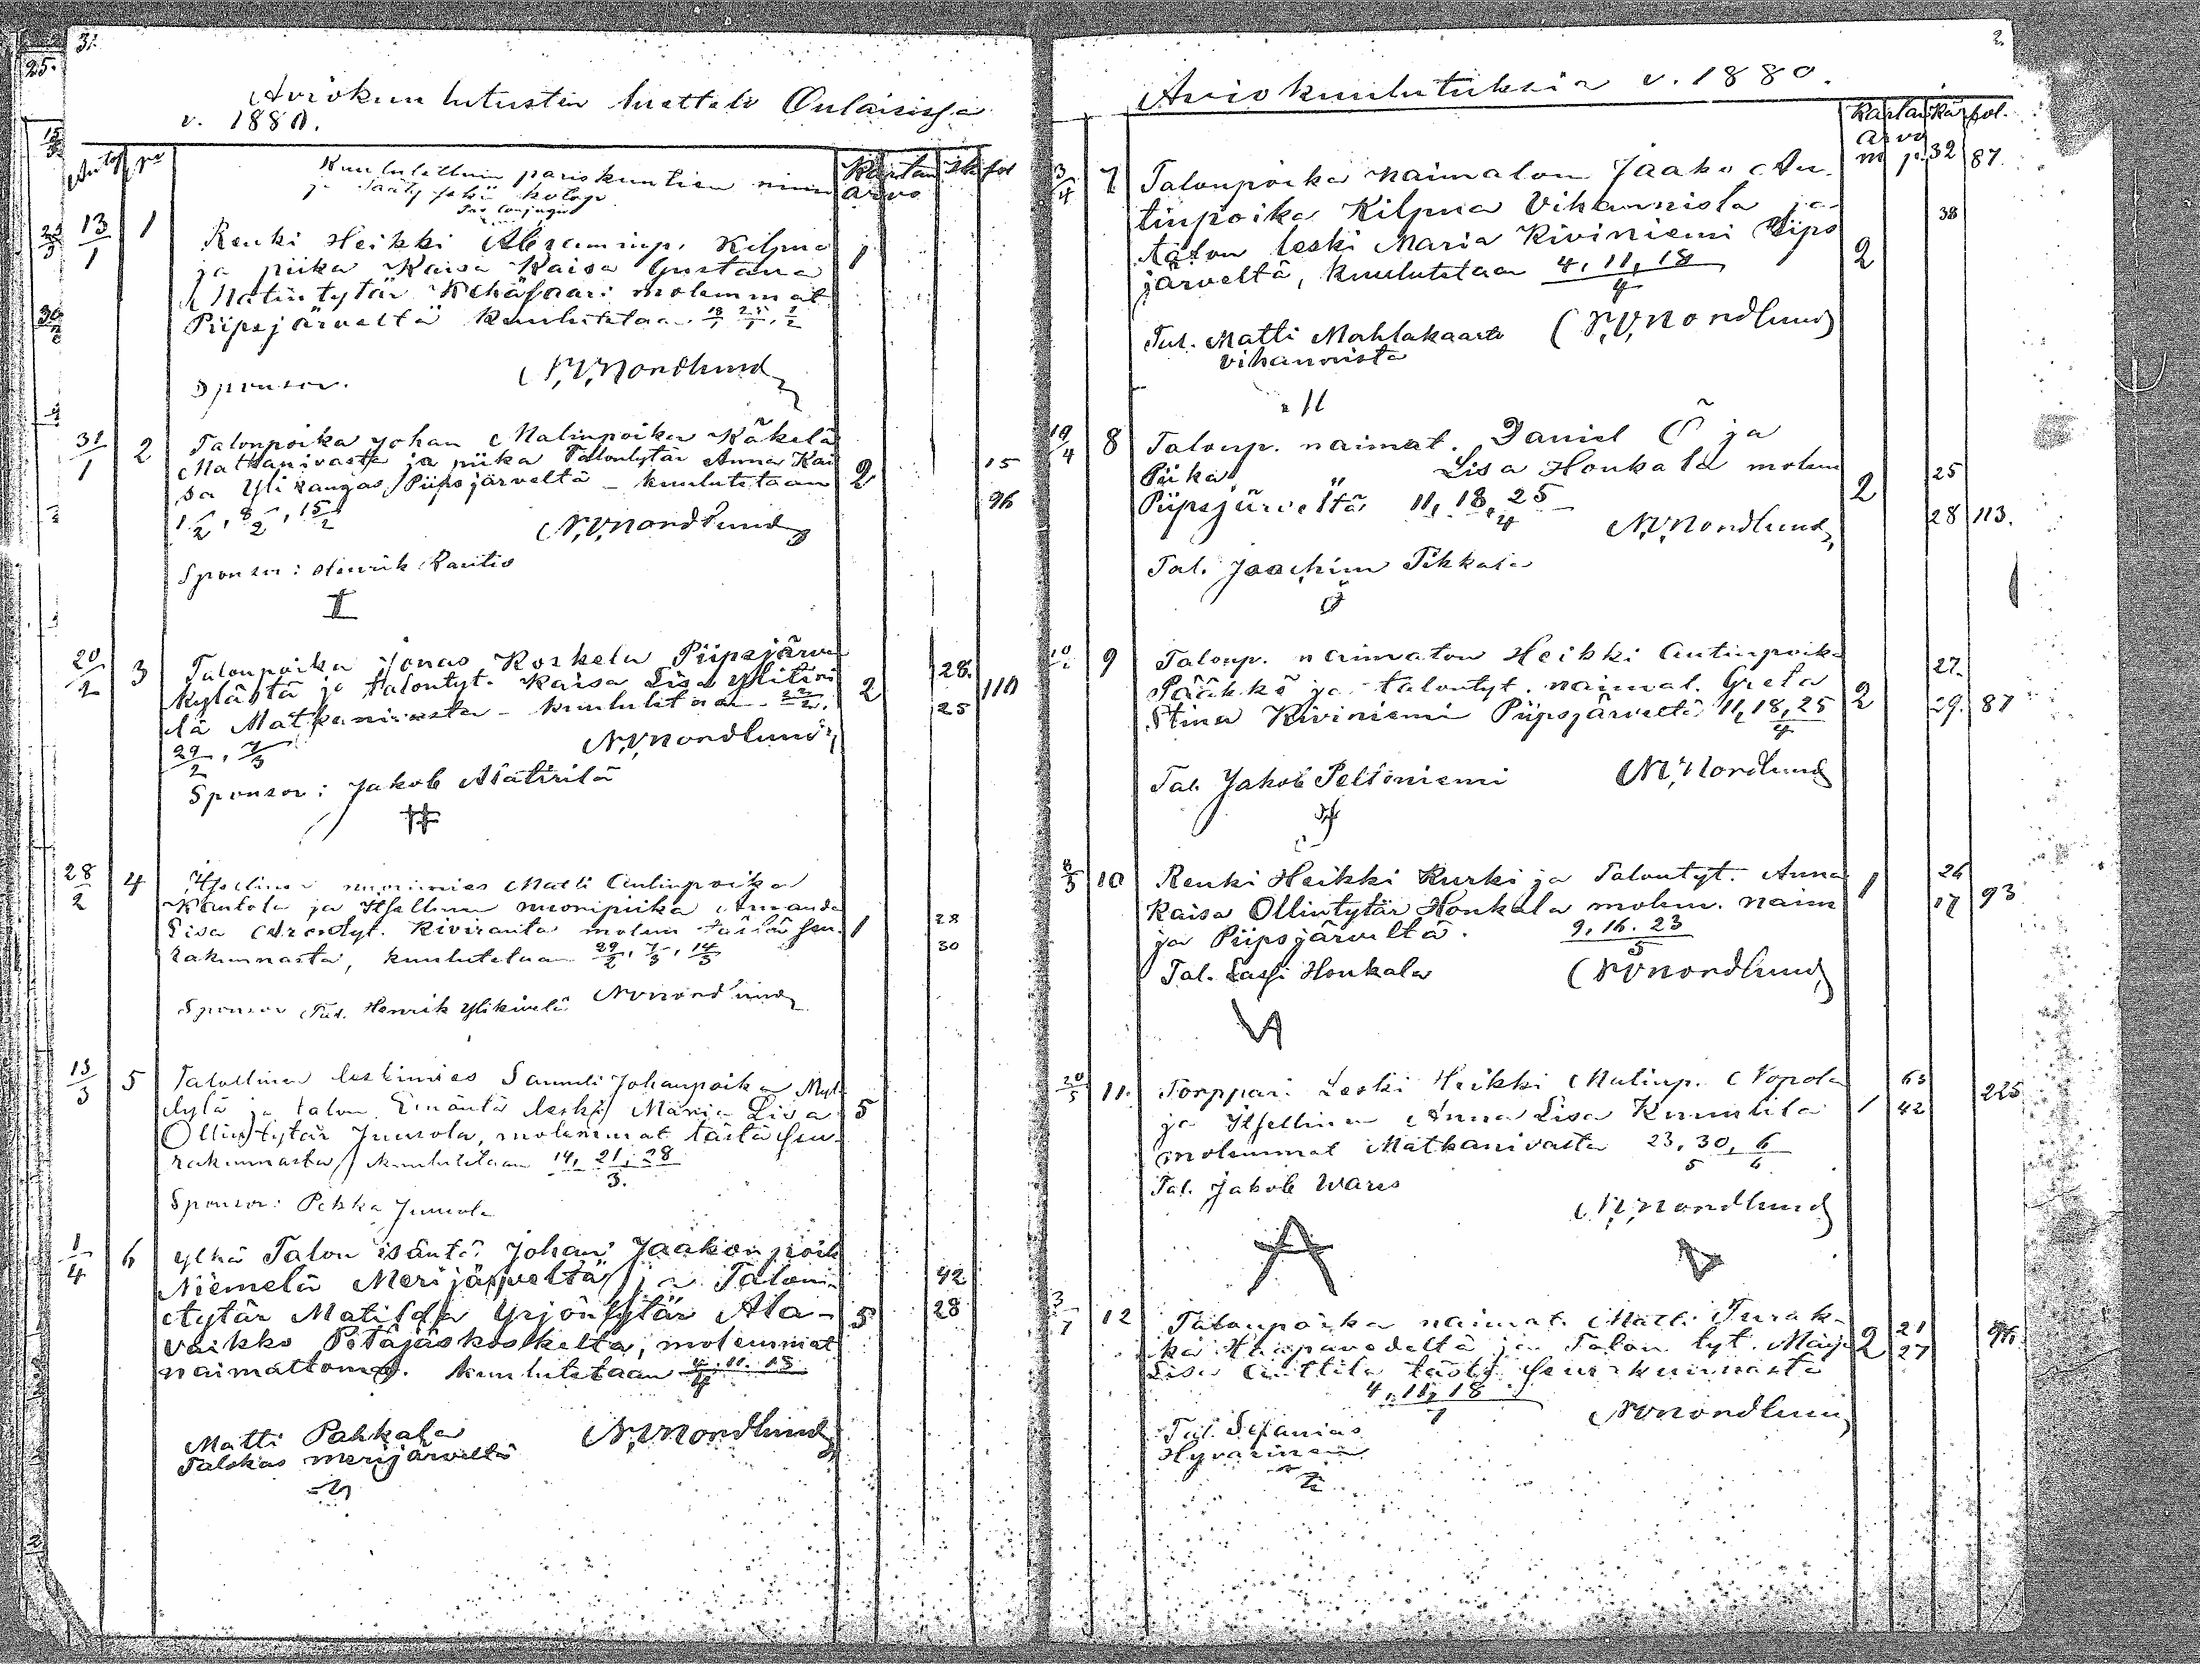 31.
Aviokuulutusten luettelo Oulaisissa
v. 1880.
Kuulutettuin pariskuntien nimi
ja Sääty sekä kotopa
Kartan arvo
13/1 1 Renki Heikki Abraminp. Kilpua
ja piika Kaisa Kaisa Gustava 1
Matintytär Kehäsaari molemmat
Piipsjärveltä kuulutetaan 18/1 25/1 1/2
N.V. Nordlund
Sponsor.
31/1 2 Talonpoika Johan Matinpoika Käkelä
Matkanivasta ja piika Talontytär Anna Kai 15
sa Ylikangas Piipsjärveltä - kuulutetaan 2
1/2, 8/2, 15/2 96
N.V. Nordlund
Sponsor: Henrik Rautio
20/2 3 Talonpoika Jonas Koskela Piipsjärven 28.
kylästä ja talontyt. Kaisa Lisa Ylitiri 2 110
lä Matkanivasta - kuulutetaan 22/2. 25
29/2, 7/3
N.V. Nordlund
Sponsor: Jakob Alatirilä
28/2 4 Itsellinen nuorimies Matti Antinpoika
Kantola ja Itsellinen nuoripiika Amanda
Lisa Kiviranta molem tästä seu. 1 28
rakunnasta, kuulutetaan 29/2, 7/3, 14/3 30
Sponsor Tal. Henrik Ylikivelä N.V. Nordlund
13/3 5 Talollinen leskimies Samuli Johanpoika Myl
lylä ja talon Emäntä leski Maria Lisa 5
Ollintytär Junsola, molemmat tästä seu-
rakunnasta kuulutetaan 14, 21, 28
3.
Sponsor: Pekka Junsola
1/4 6 Talon isäntä Johan Jaakonpoik
Niemelä Merijärveltä ja Talon- 42
tytär Matilda Yrjöntytär Ala- 5 28
vaikko Petäjäskoskelta, molemmat
naimattomia. kuulutetaan 4. 11. 18
4
Matti Pahkala N.V. Nordlund
Talokas merijärveltä
2.
Aviokuulutuksia v. 1880.
Kartan arvo m p. fol.
3/4 7 Talonpoika naimaton Jaako An- 32 87.
tinpoika Kilpua Vihannista ja 38
talon leski Maria Kiviniemi Piips
järveltä, kuulutetaan 4, 11, 18 2
4
Tal. Matti Mahlakaarto N.V. Nordlund
vihannista
10/4 8 Talonp. naimat. Daniel Ö ja
Piika Lisa Honkala molem 25
Piipsjärveltä 11, 18, 25 2
4 28 113.
N.V. Nordlund
Tal. Joachim Pihkala
10/4 9 Talonp. naimaton Heikki Antinpoika 27.
Pääkkö ja talontyt. naimat. Greta
Stina Kiviniemi Piipsjärveltä 11, 18, 25 2 29. 87
4
Tal. Jakob Peltoniemi N.V. Nordlund
8/5 10 Renki Heikki Kurki ja Talontyt. Anna 1 26
Kaisa Ollintytär Honkala molem. naim 17 93
ja Piipsjärveltä. 9, 16. 23
5
Tal. Lassi Honkala N.V. Nordlund
20/5 11. Torppari Leski Heikki Matinp. Nopola 63 225
ja Itsellinen Anna Lisa Kuuntila 1 42
molemmat Matkanivasta 23, 30, 6
5 6
Tal. Jakob Wares
N.V. Nordlund
3/7 12 Talonpoika naimat. Matti Turak- 21 96.
ka Haapavedeltä ja Talon tyt. Maija 2 27
Lisa Anttila tästä seurakunnasta
4, 11, 18
7
N.V. Nordlund
Tal. Sefanias
Hyvärinen